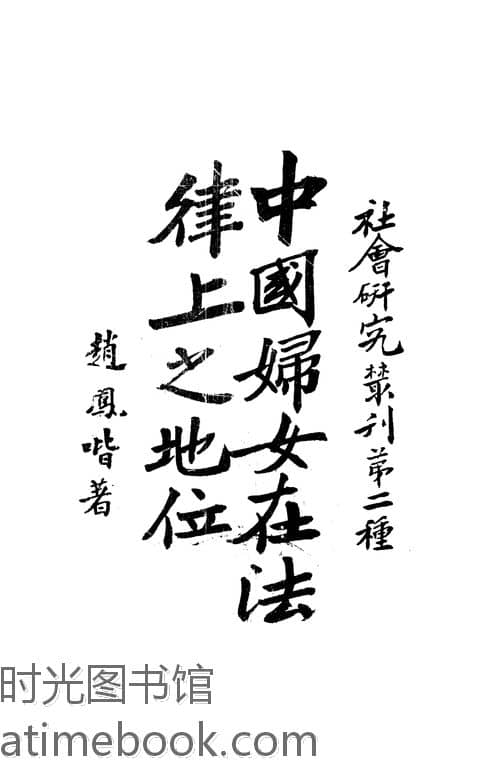 社會研究叢刊第二種
中國婦女在法
律上之地位
趙鳳喈著
时光图书馆
atimebook.com